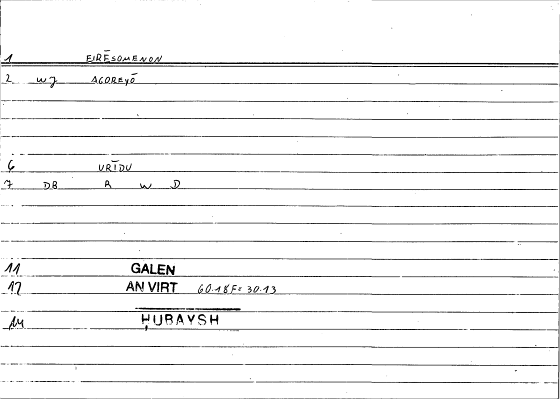 1 EIRĒSOMENON
2 WZ AGOREYŌ
6 URĪDU
7 DB R W D
11 GALEN
12 AN VIRT 60.18F = 30.13
14 ḤUBAYSH